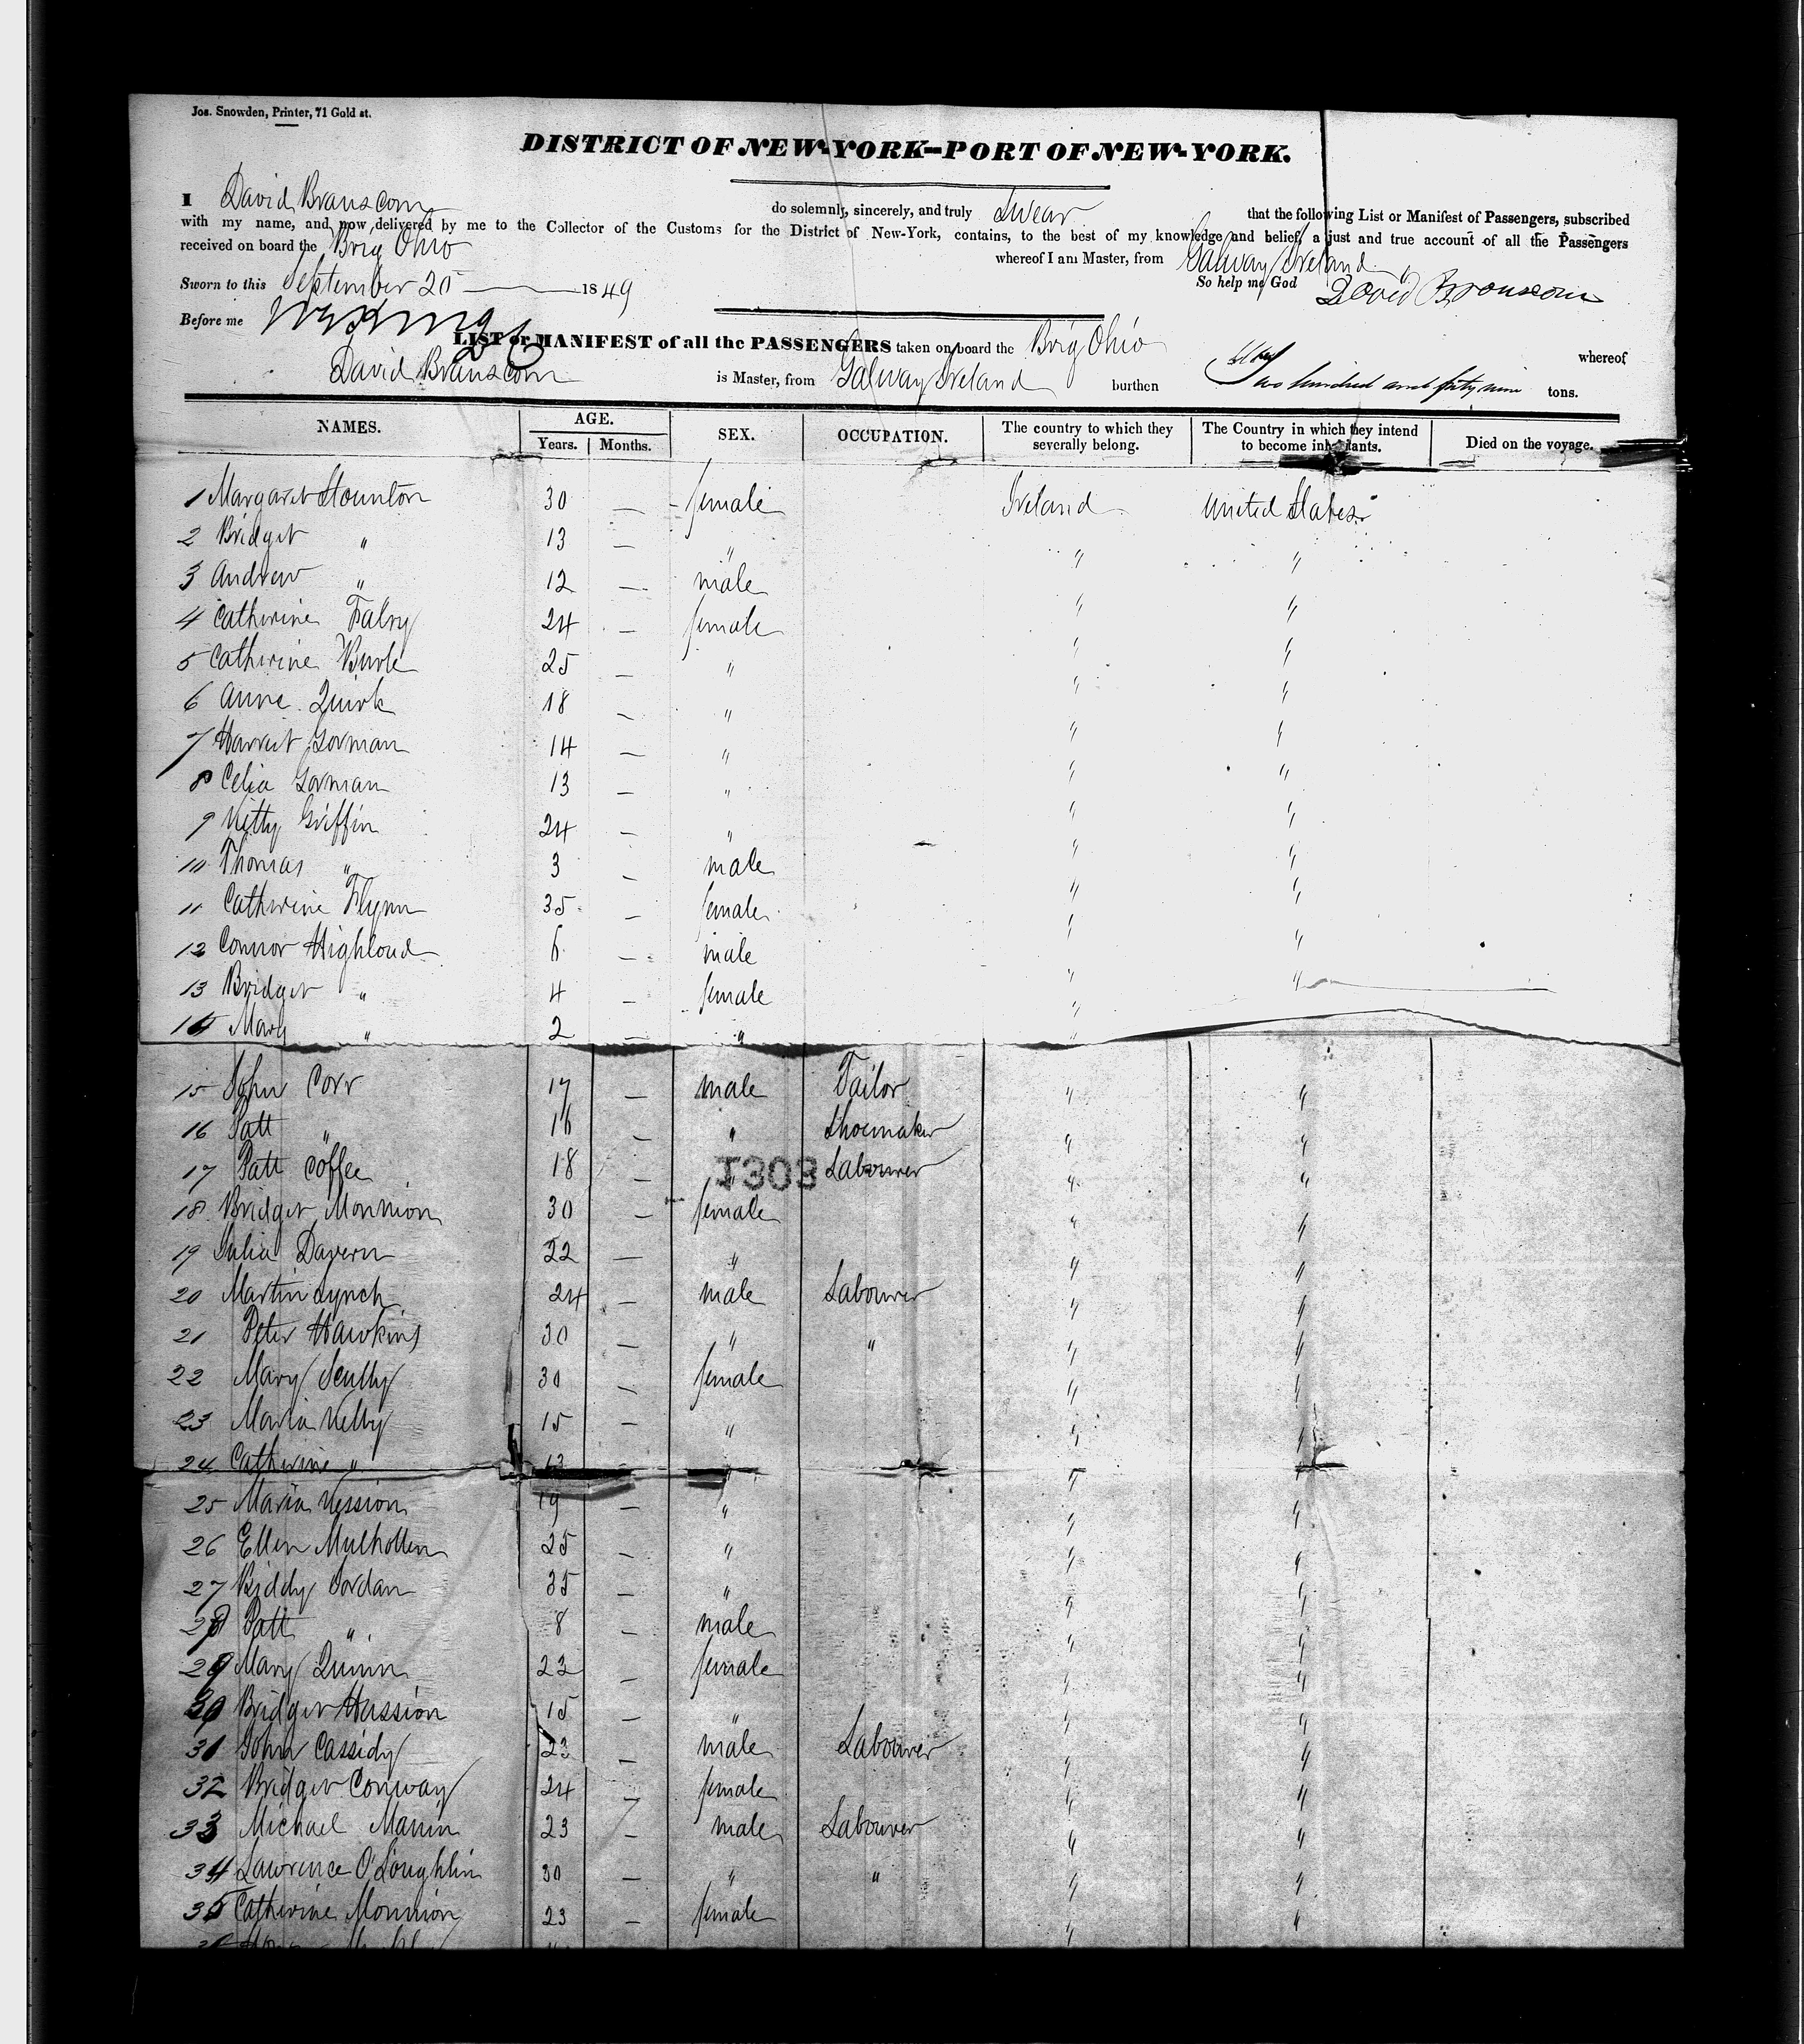 Jos. Snowden, Printer, 71 Gold st.
DISTRICT OF NEW-YORK—PORT OF NEW-YORK.
I David Branscom do solemnly, sincerely, and truly Swear that the following List or Manifest of Passengers, subscribed
with my name, and now delivered by me to the Collector of the Customs for the District of New-York, contains, to the best of my knowledge and belief, a just and true account of all the Passengers
received on board the Brig Ohio whereof I am Master, from Galway Ireland
Sworn to this September 20 1849 So help me God David Branscom
Before me
LIST or MANIFEST of all the PASSENGERS taken on board the Brig Ohio whereof
David Branscom is Master, from Galway Ireland burthen Two hundred and fifty nine tons.
NAMES. AGE. Years. Months. SEX. OCCUPATION. The country to which they severally belong. The Country in which they intend to become inhabitants. Died on the voyage.
1 Margaret Stounton 30 — female Ireland United States
2 Bridget " 13 — " " "
3 Andrew " 12 — male " "
4 Catherine Fahy 24 — female " "
5 Catherine Burke 25 — " " "
6 Anne Quirk 18 — " " "
7 Harriet Gorman 14 — " " "
8 Celia Gorman 13 — " " "
9 Kitty Griffin 24 — " " "
10 Thomas " 3 — male " "
11 Catherine Flynn 35 — female " "
12 Connor Highland 6 — male " "
13 Bridget " 4 — female " "
14 Mary " 2 — " "
15 John Corr 17 — male Tailor " "
16 Patt " 16 — " Shoemaker " "
17 Patt Coffee 18 — " Labourer " "
1303
18 Bridget Monnion 30 — female " "
19 Julia Davern 22 — " " "
20 Martin Lynch 24 — male Labourer " "
21 Peter Hawkins 30 — " " " "
22 Mary Scully 30 — female " "
23 Maria Kelly 15 — " " "
24 Catherine " 13 — " " "
25 Maria Kession 19 — " " "
26 Ellen Mulhollen 25 — " " "
27 Biddy Jordan 35 — " " "
28 Patt " 8 — male " "
29 Mary Quinn 22 — female " "
30 Bridget Hession 15 — " " "
31 John Cassidy 23 — male Labourer " "
32 Bridget Conway 24 — female " "
33 Michael Manin 23 — male Labourer " "
34 Lawrence O'Loughlin 30 — " " " "
35 Catherine Monnion 23 — female " "